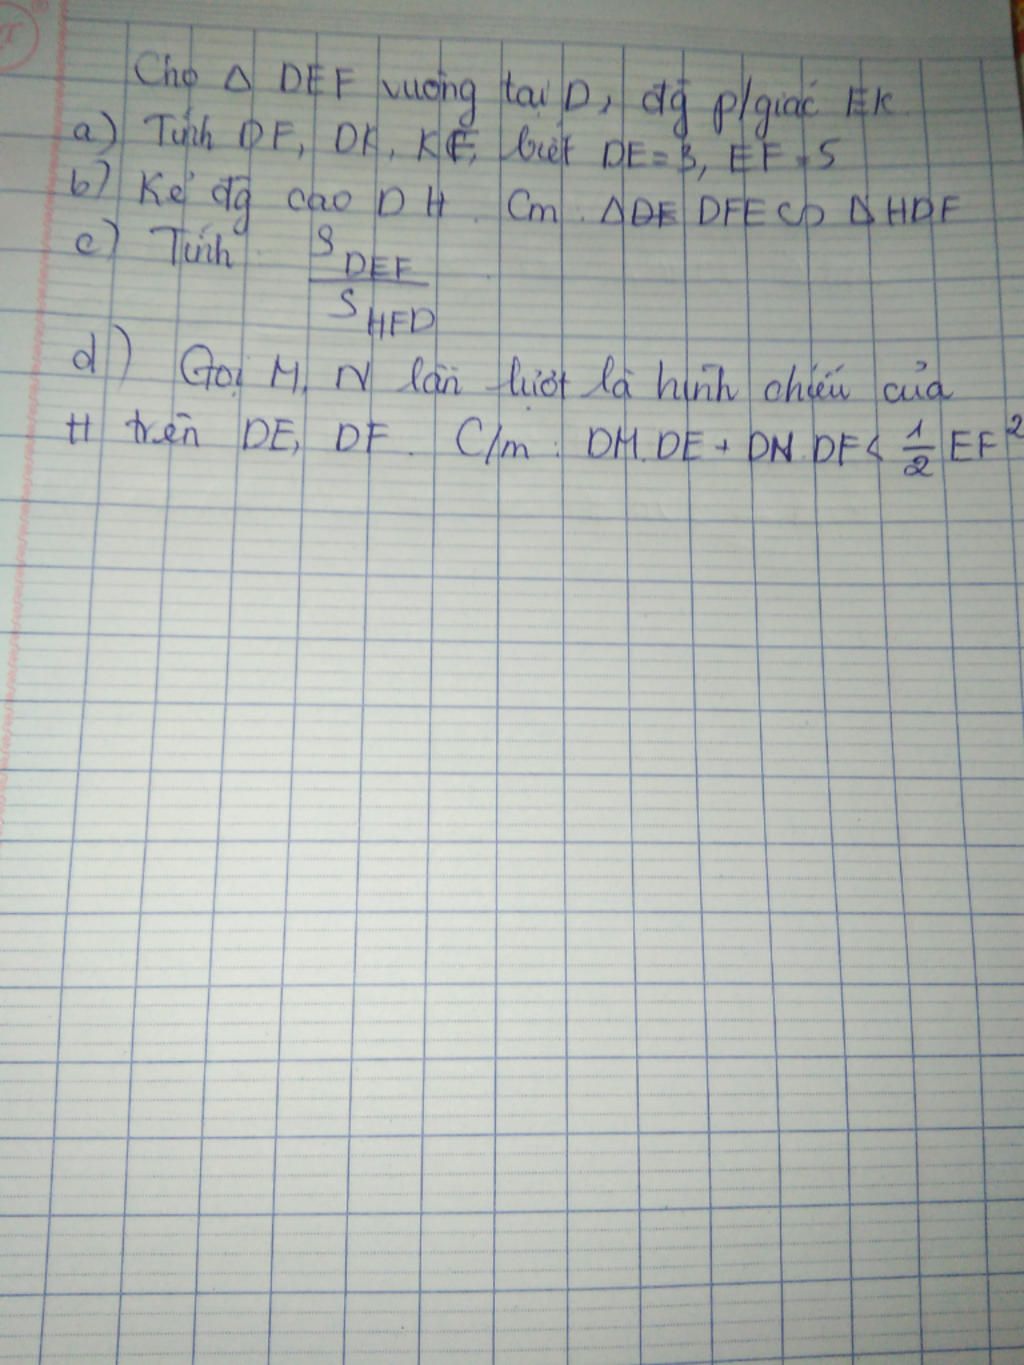 Cho Δ DEF vuông tại D, đg p/giác EK
a) Tính DF, DK, KF, biết DE = 3, EF = 5
b) Kẻ đg cao DH. Cm: ΔDE DFE ∽ ΔHDF
c) Tính S DEF / S HFD
d) Gọi M, N lần lượt là hình chiếu của
H trên DE, DF. C/m: DM.DE + DN.DF < 1/2 EF²